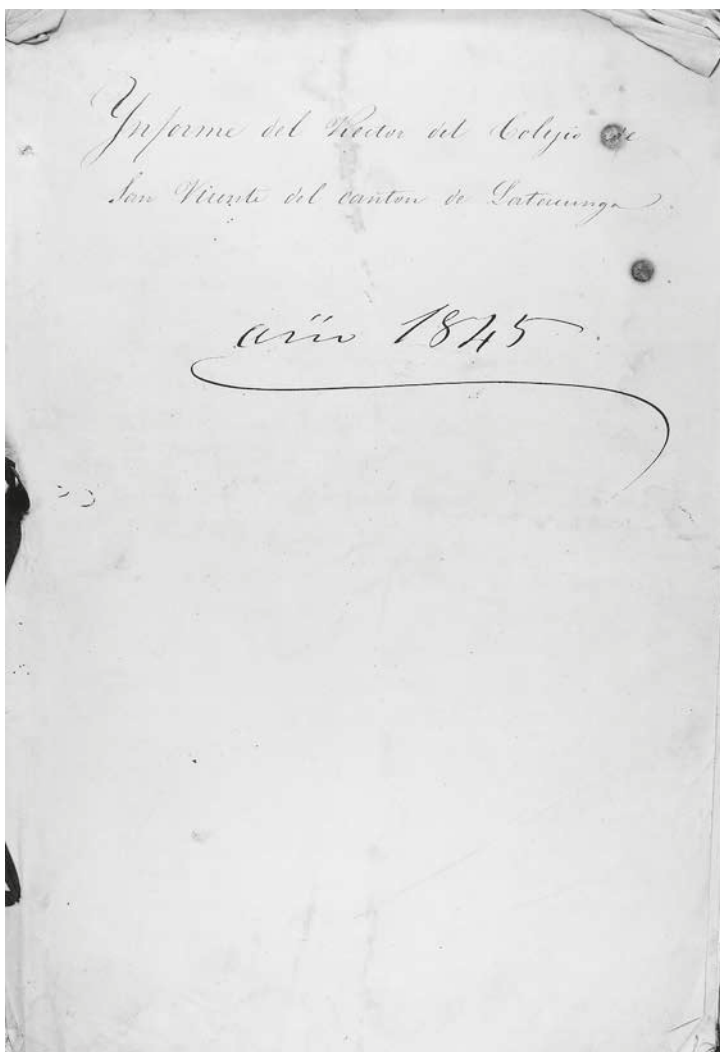 Ynforme del Rector del Colejio de
San Vicente del canton de Latacunga.
año 1845.